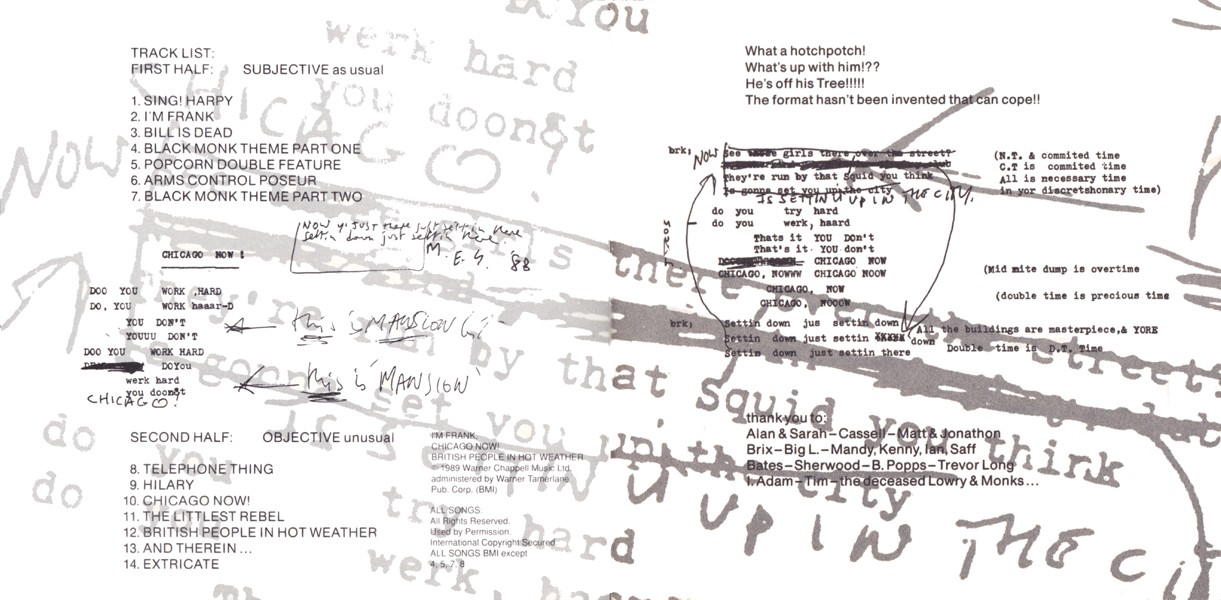 TRACK LIST:
FIRST HALF: SUBJECTIVE as usual
1. SING! HARPY
2. I'M FRANK
3. BILL IS DEAD
4. BLACK MONK THEME PART ONE
5. POPCORN DOUBLE FEATURE
6. ARMS CONTROL POSEUR
7. BLACK MONK THEME PART TWO
settin down just settin here
M. E. S. 88
CHICAGO NOW !
DOO YOU WORK ,HARD
DO, YOU WORK haaar-D
YOU DON'T
YOUUU DON'T
this is MANSION
DOO YOU WORK HARD
DOYou
this is 'MANSION'
werk hard
you doon&t
CHICAGO!
SECOND HALF: OBJECTIVE unusual
8. TELEPHONE THING
9. HILARY
10. CHICAGO NOW!
11. THE LITTLEST REBEL
12. BRITISH PEOPLE IN HOT WEATHER
13. AND THEREIN ...
14. EXTRICATE
I'M FRANK,
CHICAGO NOW!
BRITISH PEOPLE IN HOT WEATHER
© 1989 Warner Chappell Music Ltd.
administered by Warner Tamerlane
Pub. Corp. (BMI)
ALL SONGS:
All Rights Reserved.
Used by Permission.
International Copyright Secured
ALL SONGS BMI except
4, 5, 7, 8
What a hotchpotch!
What's up with him!??
He's off his Tree!!!!!
The format hasn't been invented that can cope!!
brk; NOW See those girls there over the street?
They're run by that Squid you think
Is gonna set you up the city
IS SETTIN U UP IN THE CITY.
do you try hard
do you werk, haard
Thats it YOU DOn't
That's it YOU don't
CHICAGO NOW
CHICAGO, NOWWW CHICAGO NOOW
CHICAGO, NOW
CHICAGO, NOOOW
brk; Settin down jus settin down
Settin down just settin down
Settin down just settin there
(N.T. & commited time
C.T is commited time
All is necessary time
in yor discretshonary time)
(Mid mite dump is overtime
(double time is precious time
All the buildings are masterpiece,& YORE
Double time is D.T. Time
thank you to:
Alan & Sarah – Cassell – Matt & Jonathon
Brix – Big L. – Mandy, Kenny, Ian, Saff
Bates – Sherwood – B. Popps – Trevor Long
I. Adam – Tim – the deceased Lowry & Monks ...
werk hard
you doon&t
CHICAGO!
NOW
there over the street?
run by that Squid you think
set you up the city
do you try hard
do you werk,
U UP IN THE CI